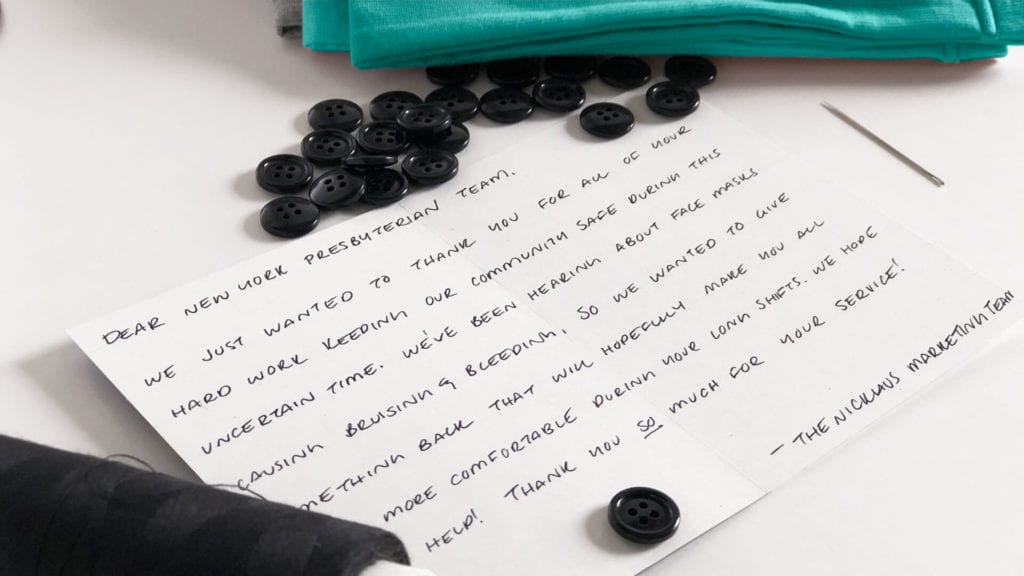 DEAR NEW YORK PRESBYTERIAN TEAM,
WE JUST WANTED TO THANK YOU FOR ALL OF YOUR
HARD WORK KEEPING OUR COMMUNITY SAFE DURING THIS
UNCERTAIN TIME. WE'VE BEEN HEARING ABOUT FACE MASKS
CAUSING BRUISING & BLEEDING, SO WE WANTED TO GIVE
METHING BACK THAT WILL HOPEFULLY MAKE YOU ALL
MORE COMFORTABLE DURING YOUR LONG SHIFTS. WE HOPE
HELP! THANK YOU SO MUCH FOR YOUR SERVICE!
— THE NICKLAUS MARKETING TEAM